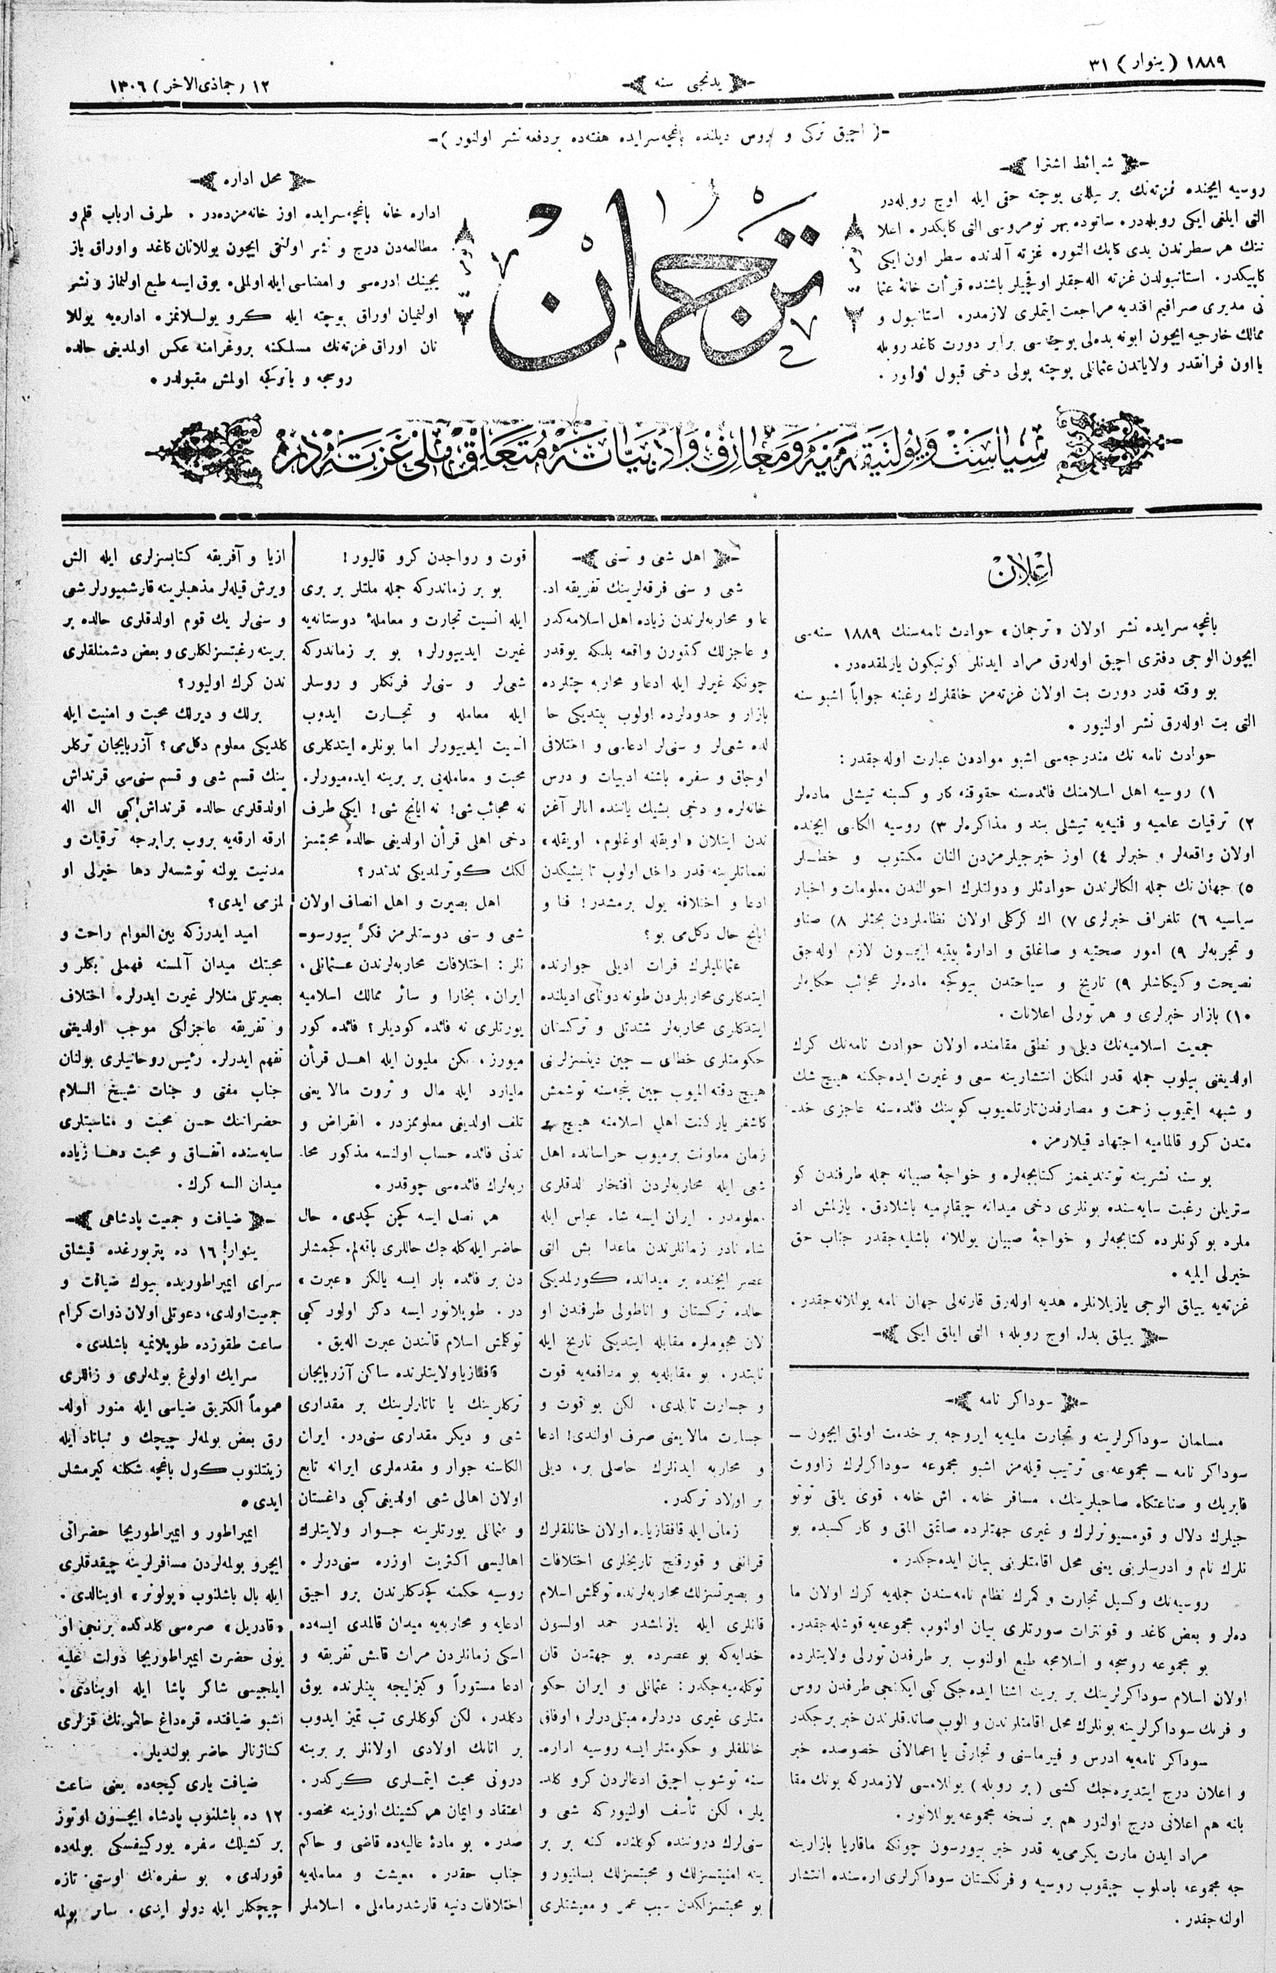 ١٨٨٩ ( ینوار ) ٣١
یدنجی سنه
١٢ ( جماذی الاخر ) ١٣٠٦
-( اچیق ترکی و روس دیلنده باغچه سرایده هفته ده بر دفعه نشر اولنور )-
شرائط اشترا
روسیه ایچنده غزته نك بر ییللق بوچته حقی ایله اوچ روبله در
التی ایلغی ایکی روبله دره ساتوده بهر نومروسی التی کاپکدر. اعلا
ننك هر سطرندن یدی کاپك النوره غزته آلدنده سطر اون ایکی
کاپیکدر. استانبولدن غزته اله جقلر اوقچیلر باشنده قرأت خانۀ عثما
نی مدیری صرافیم افندیه مراجعت ایتملری لازمدر. استانبول و
ممالك خارجیه ایچون ابونه بدلی بوچته سی برابر دورت کاغد روبله
یا اون فرانقدر ولایاتدن عثمانلی بوچته پولی دخی قبول اولنور.
ترجمان
محل اداره
اداره خانه باغچه سرایده اوز خانه مزده در. طرف ارباب قلم و
مطالعه دن درج و نشر اولنمق ایچون یوللانان کاغد و اوراق یاز
یجینك ادره سی و امضاسی ایله اولملی. یوق ایسه طبع اولنماز و نشر
اولنمیان اوراق بوچته ایله کرو یوللانمز. اداره یه یوللا
نان اوراق غزته نك مسلکنه بروغرامنه عکس اولمدیغی حالده
روسچه و یا ترکچه اولمش مقبولدر.
سیاست و پولتیقه یه و معارف و ادبیاته متعلق ملی غزته در
اعلان
باغچه سرایده نشر اولان «ترجمان» حوادث نامه سنك ١٨٨٩ سنه سی
ایچون الوجی دفتری اچیق اوله رق مراد ایدنلر کونبکون یازلمقده در.
بو وقته قدر دورت بت اولان غزته مز خلقلرك رغبنه جواباً اشبو سنه
التی بت اوله رق نشر اولنیور.
حوادث نامه نك مندرجه سی اشبو موادون عبارت اوله جقدر:
١) روسیه اهل اسلامنك فائده سنه حقوقنه کار و کسبنه تیشلی ماده لر
٢) ترقیات علمیه و فنیه یه تیشلی بند و مذاکره لر ٣) روسیه الکاسی ایچنده
اولان واقعه لر و خبرلر ٤) اوز خبرجیلرمزدن النان مکتوب و خطلر
٥) جهان نك جمله الکالرندن حوادثلر و دولتلرك احوالندن معلومات و اخبار
سیاسیه ٦) تلغراف خبرلری ٧) اك کرکلی اولان نظاملردن بحثلر ٨) صناو
و تجربه لر ٩) امور صحتیه و صاغلق و ادارۀ بیتیه ایچون لازم اوله جق
نصیحت و کیکاشلر ٩) تاریخ و سیاحتدن بیوکجه ماده لر عجائب حکایه لر
١٠) بازار خبرلری و هر تورلی اعلانات.
جمعیت اسلامیه نك دیلی و نطقی مقامنده اولان حوادث نامه نك کرك
اولدیغنی بیلوب جمله قدر المکان انتشارینه سعی و غیرت ایده جکنه هیچ شك
و شبهه ایتمیوب زحمت و مصارفدن تارتلمیوب کوپنك فائده سنه عاجزی خد-
متدن کرو قالمامیه اجتهاد قیلارمز.
بو سنه نشرینه توتندیغمز کتابجه لره و خواجۀ صبیانه جمله طرفندن کو
ستریلن رغبت سایه سنده بونلری دخی میدانه چیقارمیه باشلادق. یازلمش اد
ملرد بو کونلرده کتابجه لر و خواجۀ صبیان یوللانه باشلیه جقدر جناب حق
خیرلی ایلیه.
غزته یه ییللق الوجی یازیلانلره هدیه اوله رق قارته لی جهان نامه یوللانه جقدر.
ییللق بدل. اوچ روبله؛ التی ایلق ایکی
سوداکر نامه
مسلمان سوداکرلرینه و تجارت مایه یه ایروجه بر خدمت اولمق ایچون —
سوداکر نامه — مجموعه سی ترتیب قیله مز اشبو مجموعه سوداکرلرك زاووت
فابریك و صناعتکاه صاحبلرینك، مسافر خانه. اش خانه، قوی یاقی توتو
جیلرك دلال و قومسیونرلرك و غیری جهتلرده صاتمق المق و کار کسبده بو
نلرك نام و ادرسلرینی یعنی محل اقامتلرینی بیان ایده جکدر.
روسیه نك وکسیل تجارت و کمرك نظام نامه سندن جمله یه کرك اولان ما
ده لر و بعض کاغد و قونترات صورتلری بیان اولنوب مجموعه یه قوشیله جقدر.
بو مجموعه روسجه و اسلامجه طبع اولنوب بر طرفدن تورلی ولایتلرده
اولان اسلام سوداکرلرینك بر برینه اشنا ایده جکی کبی ایکنجی طرفدن روس
و فرنك سوداکرلرینه بونلرك محل اقامتلرندن و الوب صاتدقلرندن خبر برجکدر
سوداکر نامه یه ادرس و فیرماسنی و تجارتی یا اعمالاتی خصوصده خبر
و اعلان درج ایتدیره جك کشی ( بر روبله ) یوللامسی لازمدرکه بونك مقا
بانه هم اعلانی درج اولنور هم بر نسخه مجموعه یوللانور.
مراد ایدن مارت یکرمی یه قدر خبر بیورسون چونکه ماقاریا بازارینه
جه مجموعه باصلوب چیقوب روسیه و فرنکستان سوداکرلری اره سنده انتشار
اولنه جقدر.
اهل شعی و سنی
شعی و سنی فرقه لرینك تفریقه اد.
عا و محاربه لرندن زیاده اهل اسلامه کدر
و عاجزلك کتورن واقعه بلکه یوقدر
چونکه غیرلر ایله ادعا و محاربه چتلرده
بازار و حدودلرده اولوب بیتدیکی حا
لده شعی لر و سنی لر ادعاسی و اختلافی
اوجاق و سفره باشنه ادبیات و درس
خانه لره و دخی بشیك یاننده انالر آغز
ندن ایتلان «اویقله اوغلوم، اویقله»
نعماتلرینه قدر داخل اولوب تا بشیکدن
ادعا و اختلافه یول برمشدر! فنا و
ایانج حال دکل می بو؟
عثمانلیلرك فرات ادیلی جوارنده
ایتدکلری محاربلردن طونه دونای ادیلنده
ایتدکلری محاربه لر شدتلی و ترکستان
حکومتلری خطای — چین دینسزلرنی
هیچ دقته المیوب چین پنجه سنه توشمش
کاشغر یارکنت اهل اسلامنه هیچ بر
زمان معاونت برمیوب خراسانده اهل
شعی ایله محاربه لردن افتخار الدقلری
معلومدر. ایران ایسه شاه عباس ایله
شاه نادر زمانلرندن ماعدا بش التی
عصر ایچنده بر میدانده کورلمدیکی
حالده ترکستان و اناطولی طرفندن او
لان هجوملره مقابله ایتدیکی تاریخ ایله
ثابتدر. بو مقابله یه بو مدافعه یه قوت
و جسارت تابلدی. لکن بو قوت و
جسارت مالا یعنی صرف اولندی! ادعا
و محاربه ایدنلرك حاصلی بر، دیلی
بر اولاد ترکدر.
زمانی ایله قافقازیاده اولان خانلقلرك
قرانغی و قورقنج تاریخلری اختلافات
و بصیرتسزلك محاربه لرنده توکلمش اسلام
قانلری ایله یازلمشدر حمد اولسون
خدایه که بو عصرده بو جهتدن قان
توکله میه جکدر: عثمانلی و ایران حکو
متلری غیری دردلره مبتلی درلر؛ اوفاق
خانلقلر و حکومتلر ایسه روسیه اداره.
سنه توشوب اچیق ادعالردن کرو کلد
یلر، لکن تأسف اولنیورکه شعی و
سنی لرك دروننده کوکلنده کنه بر بر
ینه امنیتسزلك و محبتسزلك بسلنیور و
بو محبتسزلکدن سبب عمر و معیشتلری
قوت و رواجدن کرو قالیور!
بو بر زماندرکه جمله ملتلر بر بری
ایله انسیت تجارت و معاملۀ دوستانه یه
غیرت ایدییورلر؛ بو بر زماندرکه
شعی لر و سنی لر فرنکلر و روسلر
ایله معامله و تجارت ایدوب
انسیت ایدییورلر اما بونلره ایتدکلری
محبت و معامله یی بر برینه ایده میورلر.
نه عجائب شی! نه ایانج شی! ایکی طرف
دخی اهلی قرأن اولدیغی حالده محبتسز
لکك کوترلمدیکی نندندر؟
اهل بصیرت و اهل انصاف اولان
شعی و سنی دوستلرمز فکر بیورسو-
نلر: اختلافات محاربه لرندن عثمانلی،
ایران، بخارا و سائر ممالك اسلامیه
یورتلری نه فائده کودیلر؟ فائده کور
میورز، لکن ملیون ایله اهل قرأن
ملیارد ایله مال و ثروت مالا یعنی
تلف اولدیغی معلومزدر. انقراض و
تدنی فائده حساب اولنسه مذکور محا.
ربه لرك فائده سی چوقدر.
هر نصل ایسه کچن کچدی. حال
حاضر ایله کله جك حاللری باقه لم. کچمشلر
دن بر فائده بار ایسه یالکز «عبرت»
در. طوپلانور ایسه دکز اولور کبی
توکلمش اسلام قانندن عبرت اله یق.
قافقازیا ولایتلرنده ساکن آزربایجان
ترکلرینك یا تاتارلرینك بر مقداری
شعی و دیکر مقداری سنی در. ایران
الکاسنه جوار و مقدملری ایرانه تابع
اولان اهالی شعی اولدیغی کبی داغستان
و عثمانلی یورتلرینه جوار ولایتلرك
اهالیسی اکثریت اوزره سنی درلر.
روسیه حکمنه کچدکلرندن برو اچیق
ادعایه و محاربه یه میدان قالمدی ایسه ده
اسکی زمانلردن مراث قالمش تفریقه و
ادعا مستوراً و کیزلیجه بینلرنده یوق
دکلدر، لکن کوکللری تب تمیز ایدوب
بر اتانك اولادی اولانلر بر برینه
درونی محبت ایتمه لری کرکدر.
اعتقاد و ایمان هر کشینك اوزینه مخصو.
صدره بو مادۀ عالیه ده قاضی و حاکم
جناب حقدر. معیشت و معامله یه
اختلافات دنیه قارشدرماملی. اسلاملر
ازیا و آفریقه کتابسزلری ایله الش
ویرش قیله لر مذهبلرینه قارشمیورلر شعی
و سنی لر یك قوم اولدقلری حالده بر
برینه رغبتسزلکلری و بعض دشمنلقلری
ندن کرك اولیور؟
برلك و دیرلك محبت و امنیت ایله
کلدیکی معلوم دکل می؟ آزربایجان ترکلر
ینك قسم شعی و قسم سنی سی قرنداش
اولدقلری حالده قرنداش کبی ال اله
ارقه ارقه یه بروب برابرجه ترقیات و
مدنیت یولنه توشسه لر دها خیرلی او
لمزمی ایدی؟
امید ایدرزکه بین العوام راحت و
محبتك میدان آلمسنه فهملی بکلر و
بصیرتلی منلالر غیرت ایدرلر. اختلاف
و تفریقه عاجزلکی موجب اولدیغنی
تفهم ایدرلر. رئیس روحانیلری بولنان
جناب مفتی و جناب شیخ السلام
حضراتنك حسن محبت و مناسبتلری
سایه سنده اتفاق و محبت دها زیاده
میدان السه کرك.
ضیافت و جمعیت پادشاهی
ینوار! ١٦ ده پتربورغده قیشلق
سرای ایمپراطوریده بیوك ضیافت و
جمعیت اولدی، دعوتلی اولان ذوات کرام
ساعت طقوزده طوپلانمیه باشلدی.
سرایك اولوغ بولمه لری و زاللری
عموماً الکتریق ضیاسی ایله منور اوله.
رق بعض بولمه لر چیچك و نباتاد ایله
زینتلنوب کول باغچه شکلنه کیرمشلر
ایدی.
ایمپراطور و ایمپراطوریجا حضراتی
ایچرو بولمه لردن مسافرلرینه چیقدقلری
ایله بال باشلنوب «پولونز» اوینالدی.
«قادریل» صره سی کلدکده برنجی او
یونی حضرت ایمپراطوریجا دولت علیه
ایلچیسی شاکر پاشا ایله اوینادی.
اشبو ضیافتده قره داغ حاکمی نك قزلری
کنازنالر حاضر بولندیلر.
ضیافت یاری کیجه ده یعنی ساعت
١٢ ده باشلنوب پادشاه ایچون اوتوز
بر کشیلك سفره یورکییفسکی بولمه ده
قورلدی. بو سفره نك اوستی تازه
چیچکلر ایله دولو ایدی. سائر بولمه